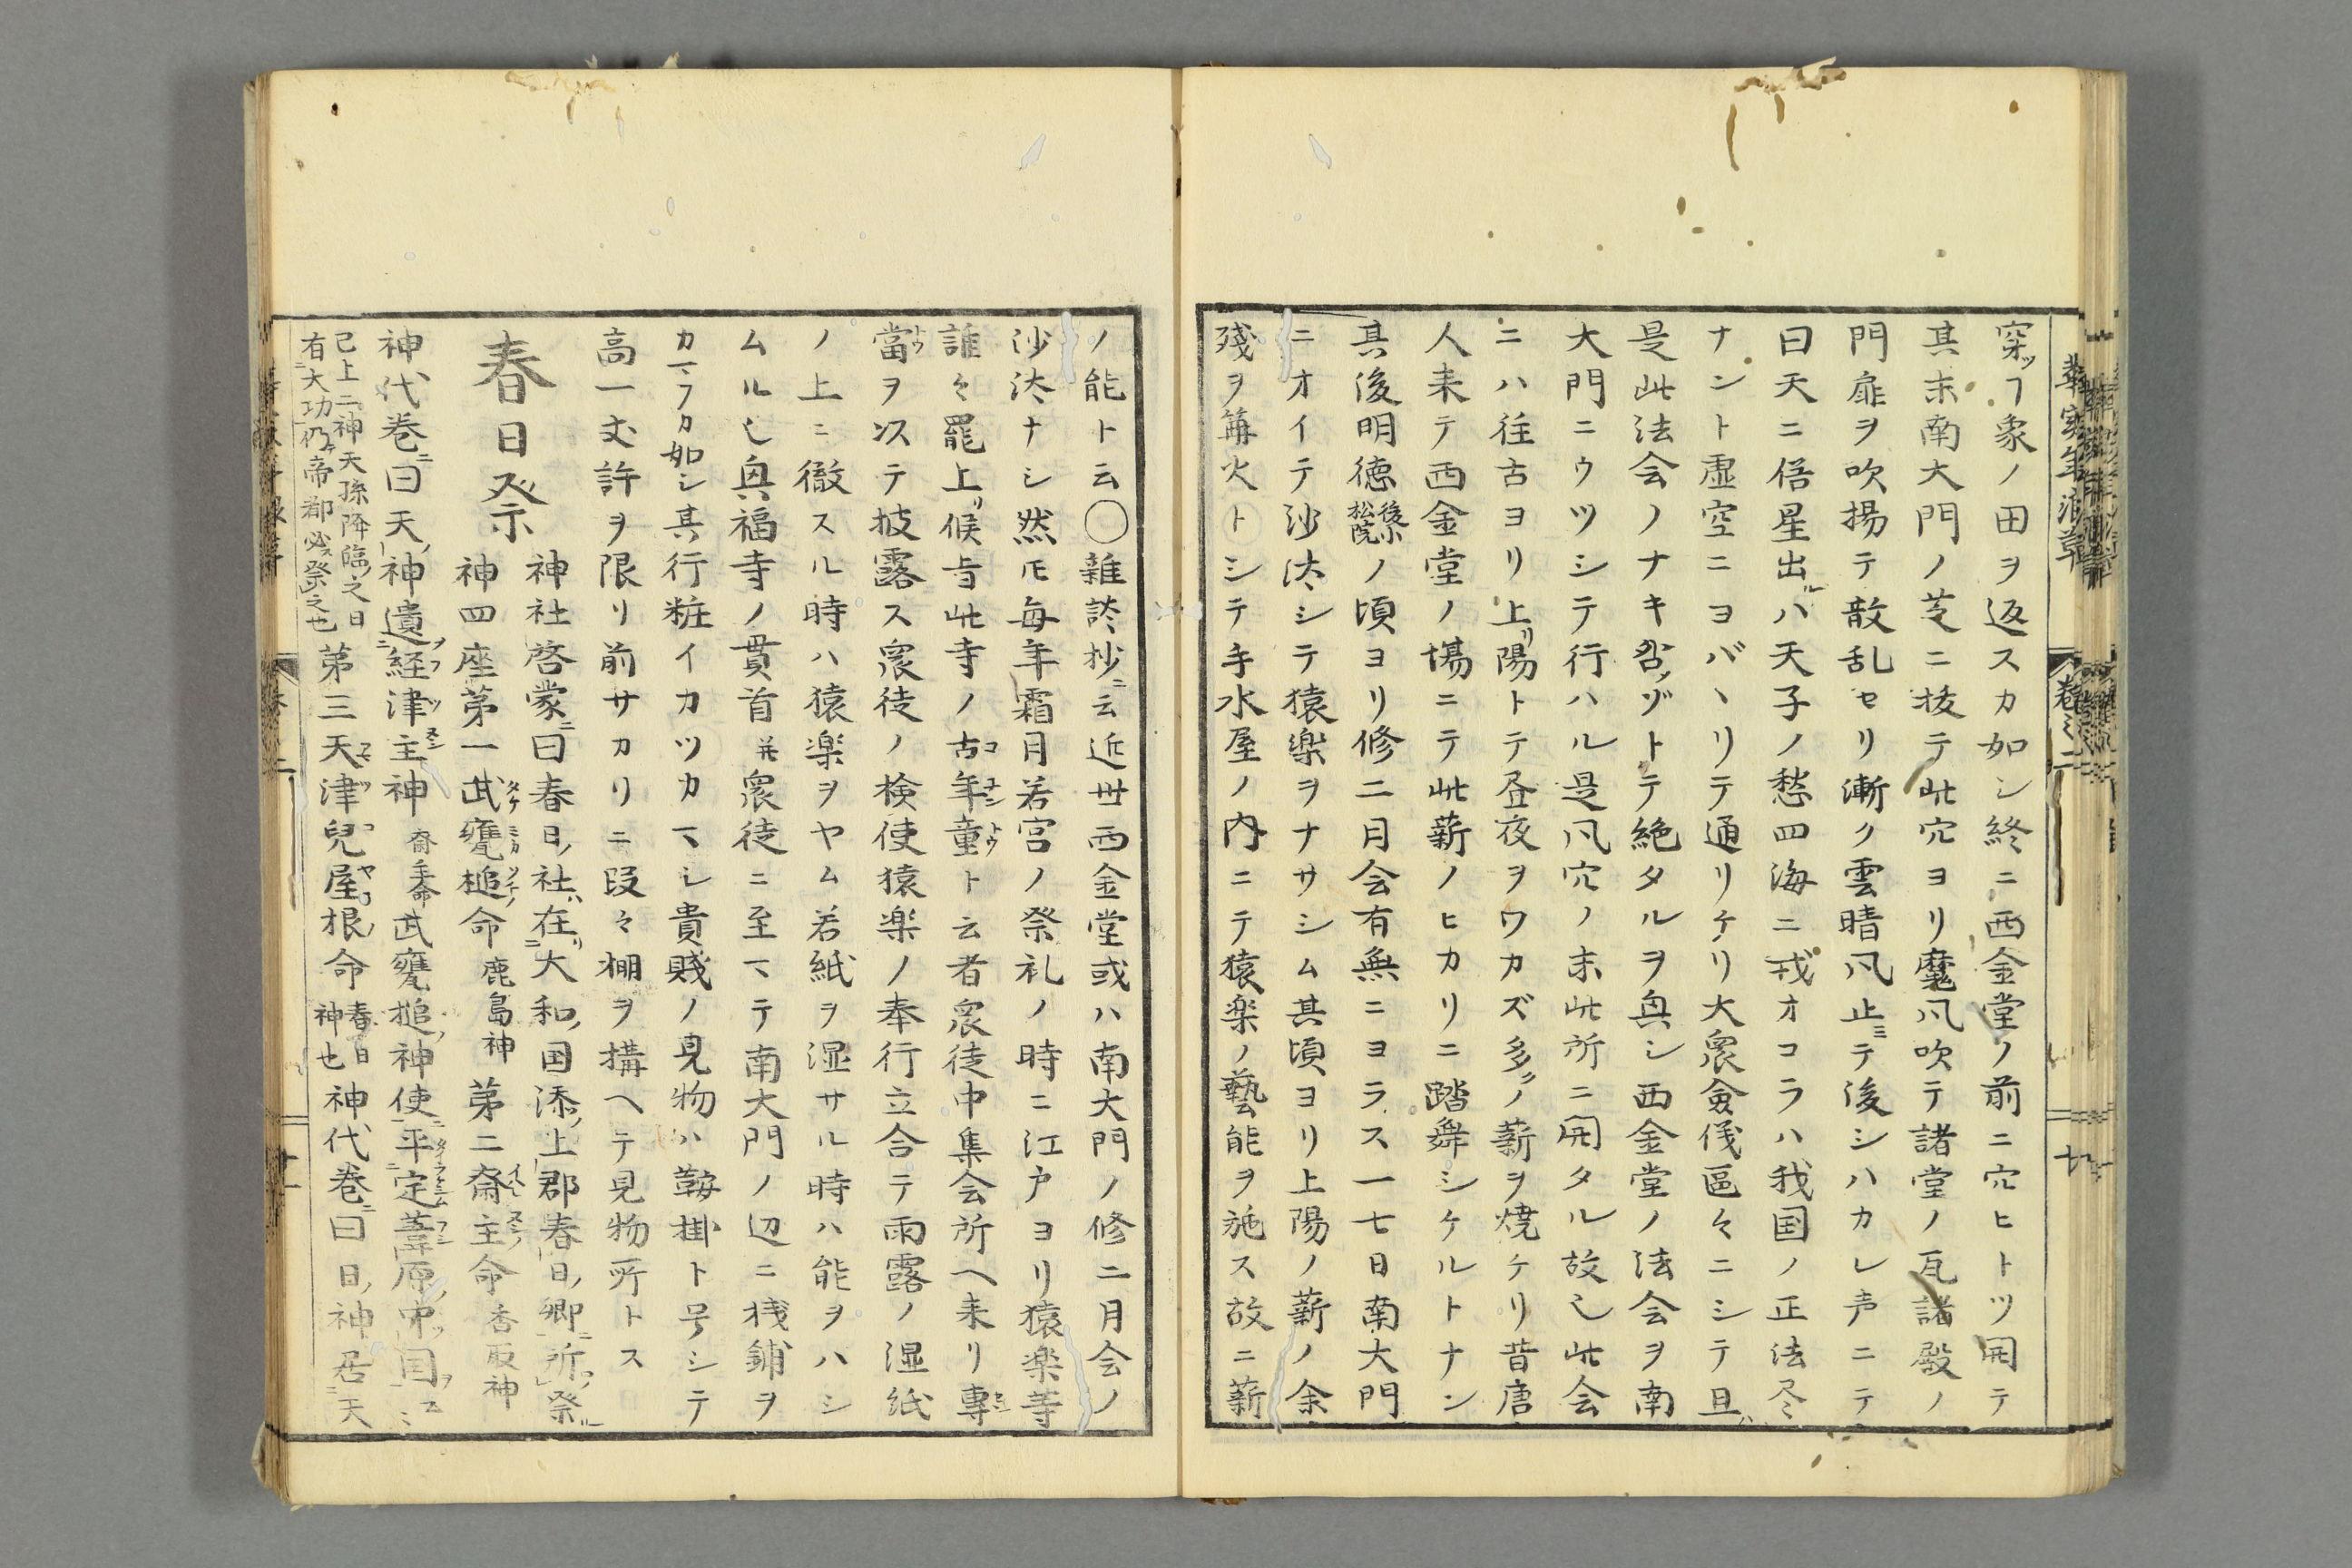 穿ツヿ象ノ田ヲ返スカ如シ終ニ西金堂ノ前ニ穴ヒトツ開テ
其末南大門ノ芝ニ抜テ此穴ヨリ魔風吹テ諸堂ノ瓦諸殿ノ
門扉ヲ吹揚テ散乱セリ漸ク雲晴風止ミテ後シハカレ声ニテ
曰天ニ俉星出ルハ天子ノ愁四海ニ戎オコラハ我国ノ正法尽
ナント虚空ニヨバヽリテ通リケリ大衆僉儀區々ニシテ且ハ
是此法会ノナキ咎ゾトテ絶タルヲ興シ西金堂ノ法会ヲ南
大門ニウツシテ行ハル是風穴ノ末此所ニ開タル故也此会
ニハ往古ヨリ上リ陽トテ昼夜ヲワカズ多クノ薪ヲ焼ケリ昔唐
人来テ西金堂ノ場ニテ此薪ノヒカリニ踏舞シケルトナン
其後明徳後小松院ノ頃ヨリ修二月会有無ニヨラス一七日南大門
ニオイテ沙汰シテ猿楽ヲナサシム其頃ヨリ上陽ノ薪ノ余
残ヲ篝火トシテ手水屋ノ内ニテ猿楽ノ藝能ヲ施ス故ニ薪
華実年浪草
巻之二
十
ノ能ト云〇雑談抄ニ云近世西金堂或ハ南大門ノ修二月会ノ
沙汰ナシ然𪜈毎年霜月若宮ノ祭礼ノ時ニ江戸ヨリ猿楽等
誰々罷上リ候㫖此寺ノ古年童ト云者衆徒中集会所ヘ来リ専
當ヲ以テ披露ス衆徒ノ検使猿楽ノ奉行立合テ雨露ノ湿紙
ノ上ニ徹スル時ハ猿楽ヲヤム若紙ヲ湿サル時ハ能ヲハシ
ムル也興福寺ノ貫首并衆徒ニ至マテ南大門ノ辺ニ桟鋪ヲ
カマフカ如シ其行粧イカツカマシ貴賤ノ見物ハ鞍掛ト号シテ
高一丈許ヲ限リ前サカリニ段々棚ヲ搆ヘテ見物所トス
春日祭
神社啓蒙ニ曰春日ノ社ハ在リ大和ノ国添ノ上郡春日ノ郷ニ所ノ祭ル
神四座第一武甕槌命鹿島神第二齋主命香取神
神代巻ニ曰天ノ神遺経津主神齋主命武甕槌ノ神使平定葦原ノ中国
已上二神天孫降臨之日有大功仍帝都必祭之也第三天津兒屋根命春日神也神代巻ニ曰日ノ神居天